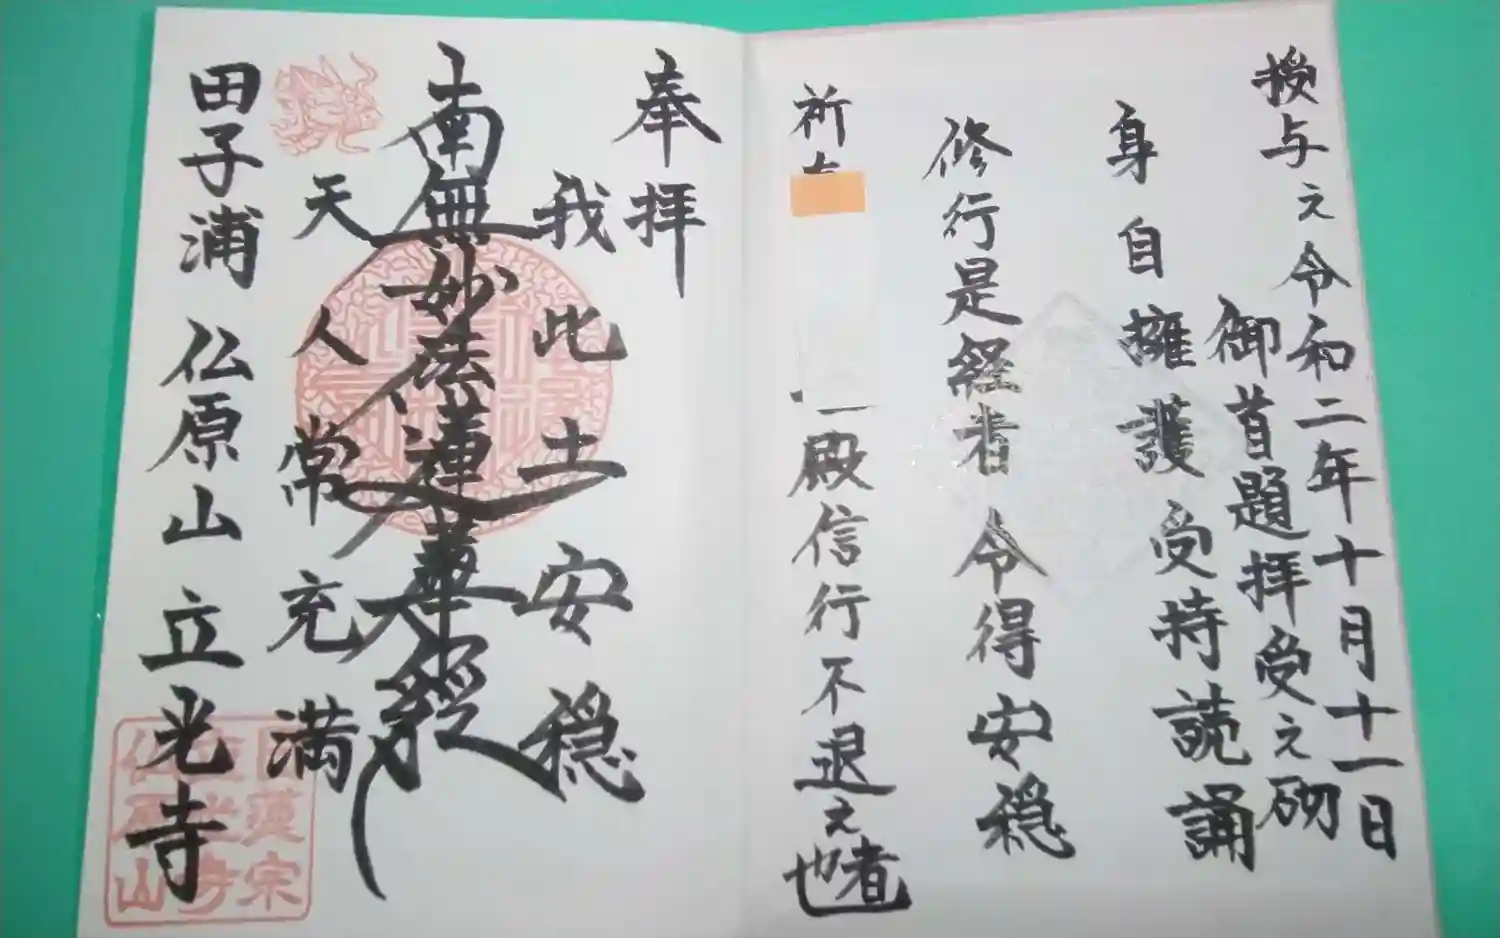 授与之令和二年十月十一日
御首題拝受之砌
身自擁護受持読誦
修行是経者令得安穏
祈
殿信行不退之者也
奉拝
我此土安穏
南無妙法蓮華経
天人常充満
田子浦 仏原山 立光寺
日蓮宗
立光寺
仏原山